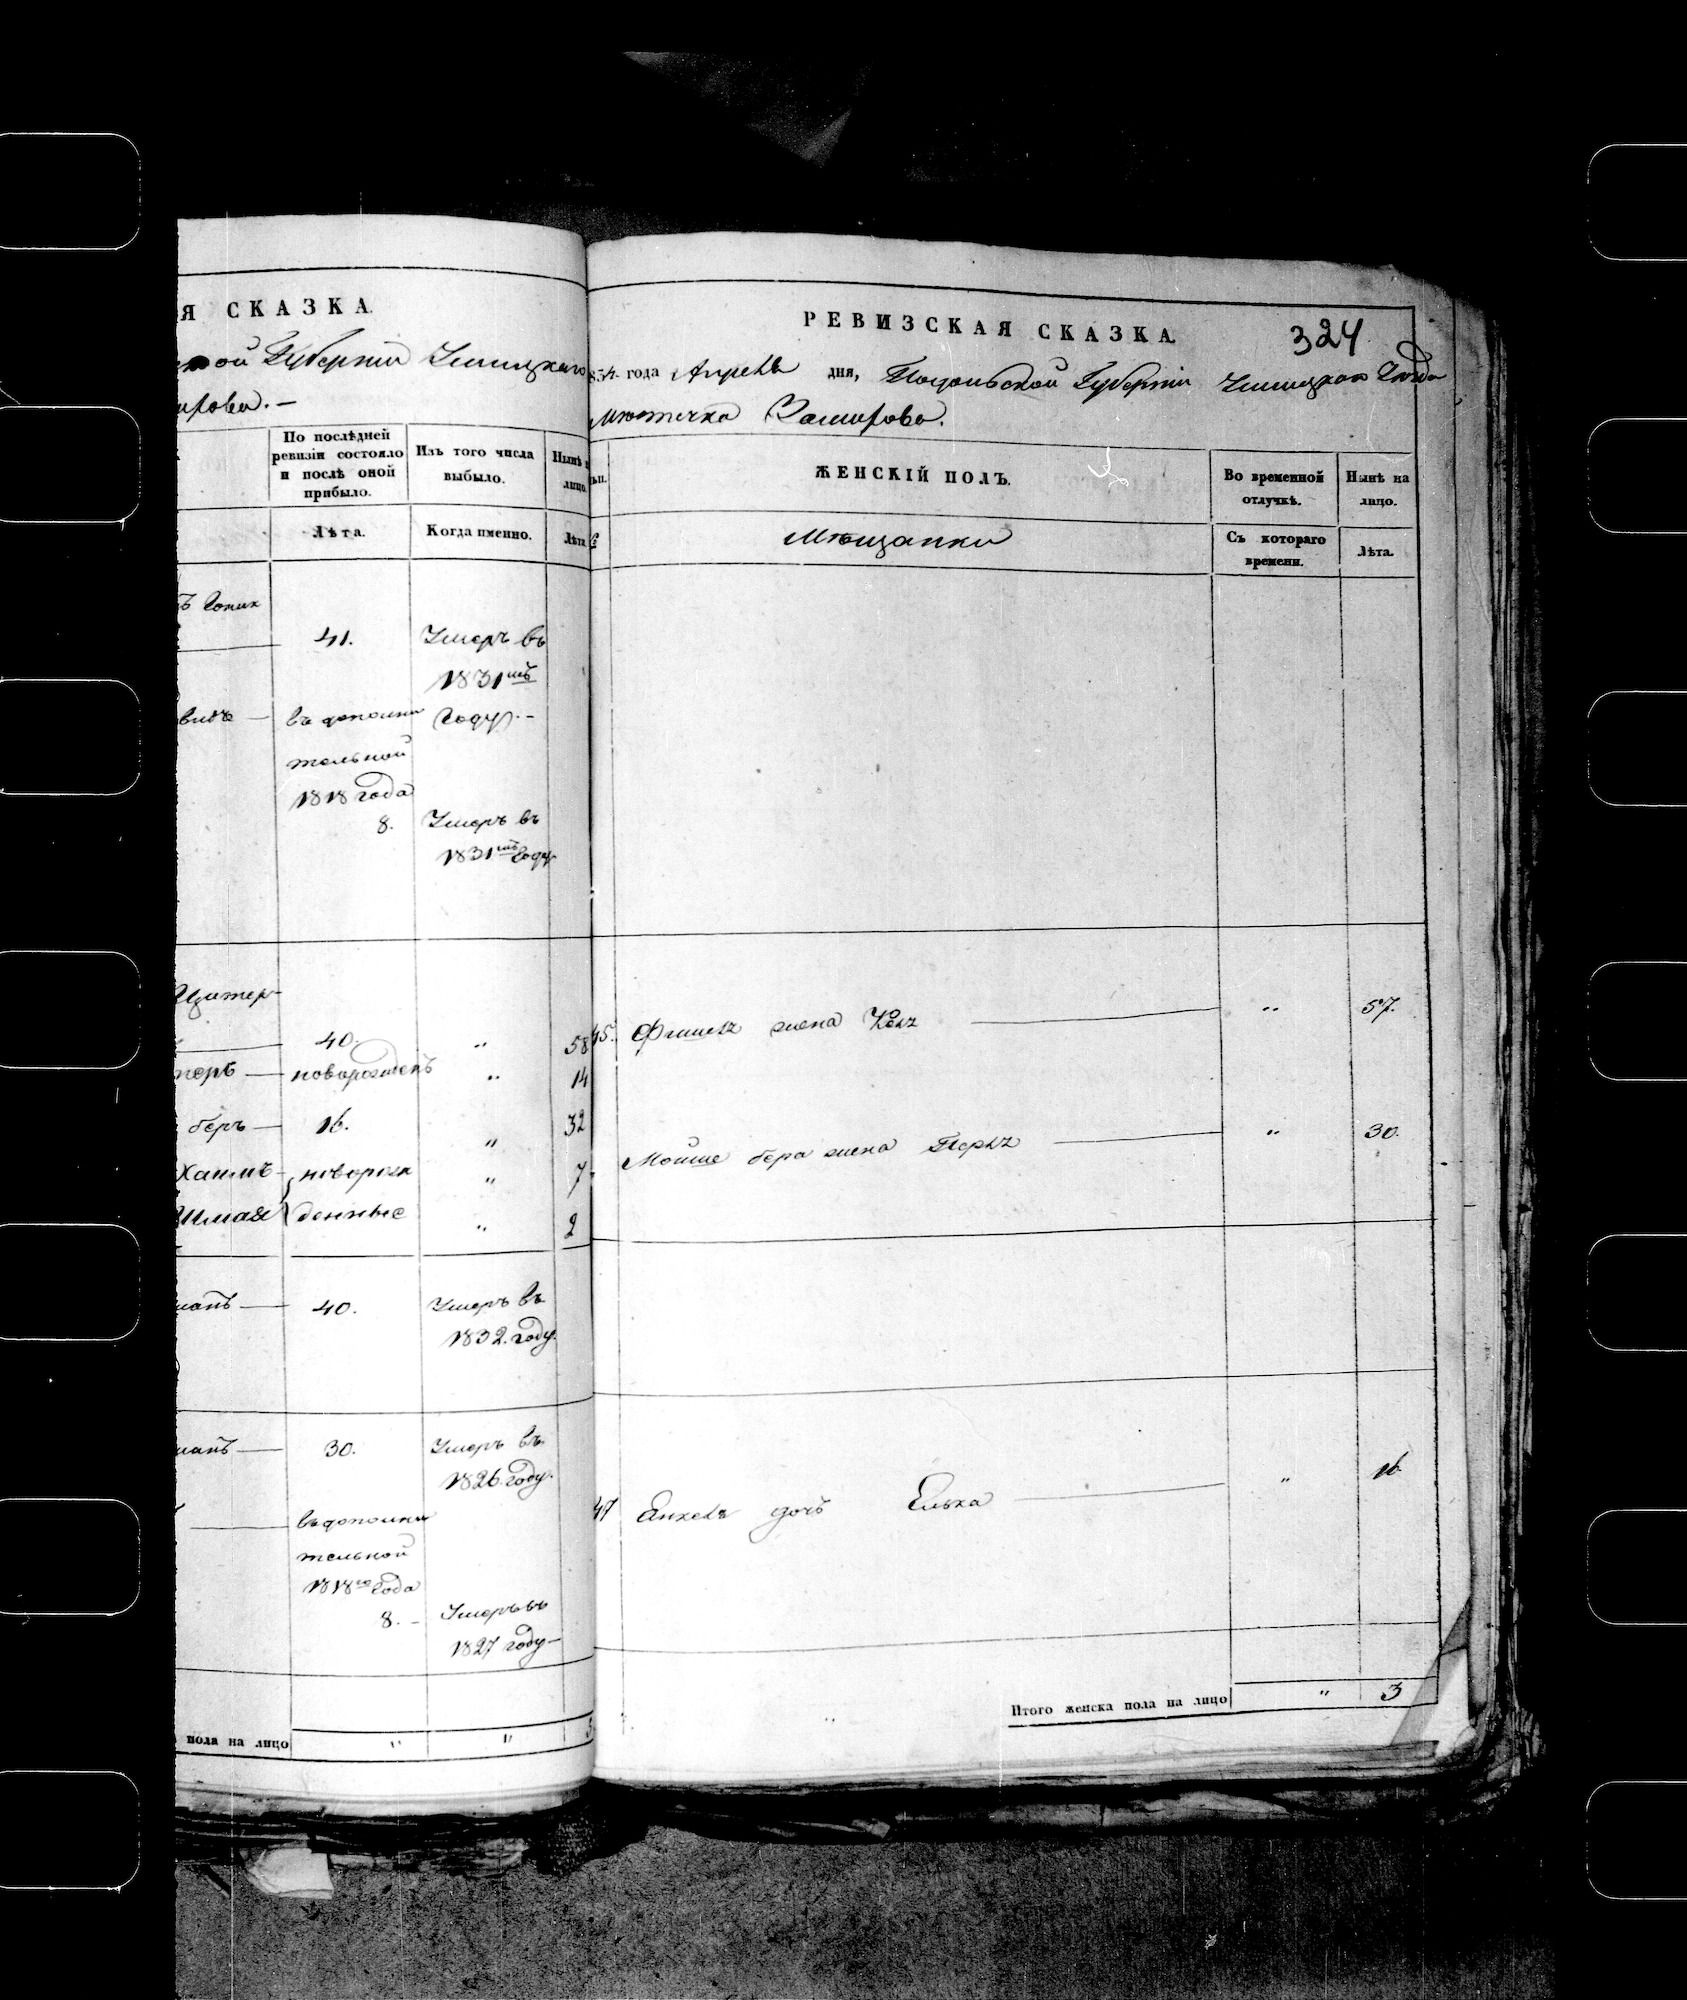 Я СКАЗКА.
Губерніи Ушицкаго
По послѣдней
ревизіи состояло
и послѣ оной
прибыло.
Изъ того числа
выбыло.
Нынѣ н
лицо.
Лѣта.
Когда именно.
Лѣта
41.
Умеръ въ
1831мъ
году. -
въ дополни
тельной
1818 года
8.
Умеръ въ
1831мъ году
40. " 58
новорожденъ " 14
беръ — 16. " 32
Хаимъ новорож " 7
Шмая денные " 2
40. Умеръ въ
1832. году.
30. Умеръ въ
1826. году.
въ дополни
тельной
1818го года
8. -
Умеръ въ
1827 году —
пола на лицо " "
РЕВИЗСКАЯ СКАЗКА.
324
854. года Апреля дня, Подольской Губерніи
местечка
ЖЕНСКІЙ ПОЛЪ.
Во временной
отлучкѣ.
Нынѣ на
лицо.
Мещанки
Съ котораго
времени.
Лѣта.
45. жена " 57.
Мошие бера жена Перля " 30.
47 дочь Елька " 16
Итого женска пола на лицо " 3